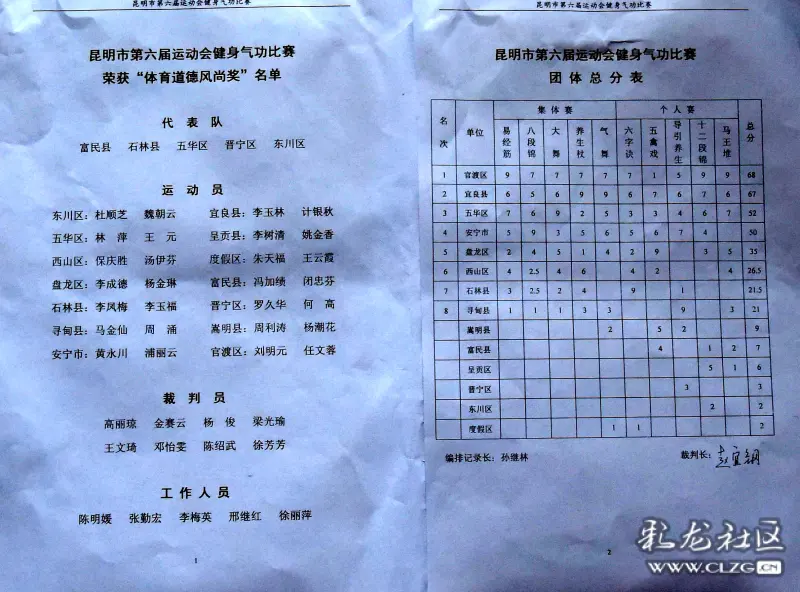 昆明市第六届运动会健身气功比赛
昆明市第六届运动会健身气功比赛
荣获“体育道德风尚奖”名单
代表队
富民县 石林县 五华区 晋宁区 东川区
运动员
东川区：杜顺芝 魏朝云 宜良县：李玉林 计银秋
五华区：林萍 王元 呈贡县：李树清 姚金香
西山区：保庆胜 汤伊芬 度假区：朱天福 王云霞
盘龙区：李成德 杨金琳 富民县：冯加绩 闭忠芬
石林县：李凤梅 李玉福 晋宁区：罗久华 何高
寻甸县：马金仙 周涌 嵩明县：周利涛 杨潮花
安宁市：黄永川 浦丽云 官渡区：刘明元 任文蓉
裁判员
高丽琼 金赛云 杨俊 梁光瑜
王文琦 邓怡雯 陈绍武 徐芳芳
工作人员
陈明媛 张勤宏 李梅英 邢继红 徐丽萍
1
昆明市第六届运动会健身气功比赛
昆明市第六届运动会健身气功比赛
团体总分表
名次 单位 集体赛 个人赛 总分
易经筋 八段锦 大舞 养生杖 气舞 六字诀 五禽戏 导引养生 十二段锦 马王堆
1 官渡区 9 7 7 7 7 7 1 5 9 9 68
2 宜良县 6 5 6 9 9 6 7 6 7 6 67
3 五华区 7 6 9 2 5 3 3 4 6 7 52
4 安宁市 5 9 3 5 6 5 6 7 4 50
5 盘龙区 2 4 5 1 4 2 9 3 5 35
6 西山区 4 2.5 4 6 4 2 4 26.5
7 石林县 3 2.5 2 4 9 1 21.5
8 寻甸县 1 1 1 3 3 9 3 21
嵩明县 2 5 2 9
富民县 4 1 2 7
呈贡区 5 1 6
晋宁区 3 3
东川区 2 2
度假区 1 1 2
编排记录长：孙继林 裁判长：
2
彩龙社区
WWW.CLZG.CN